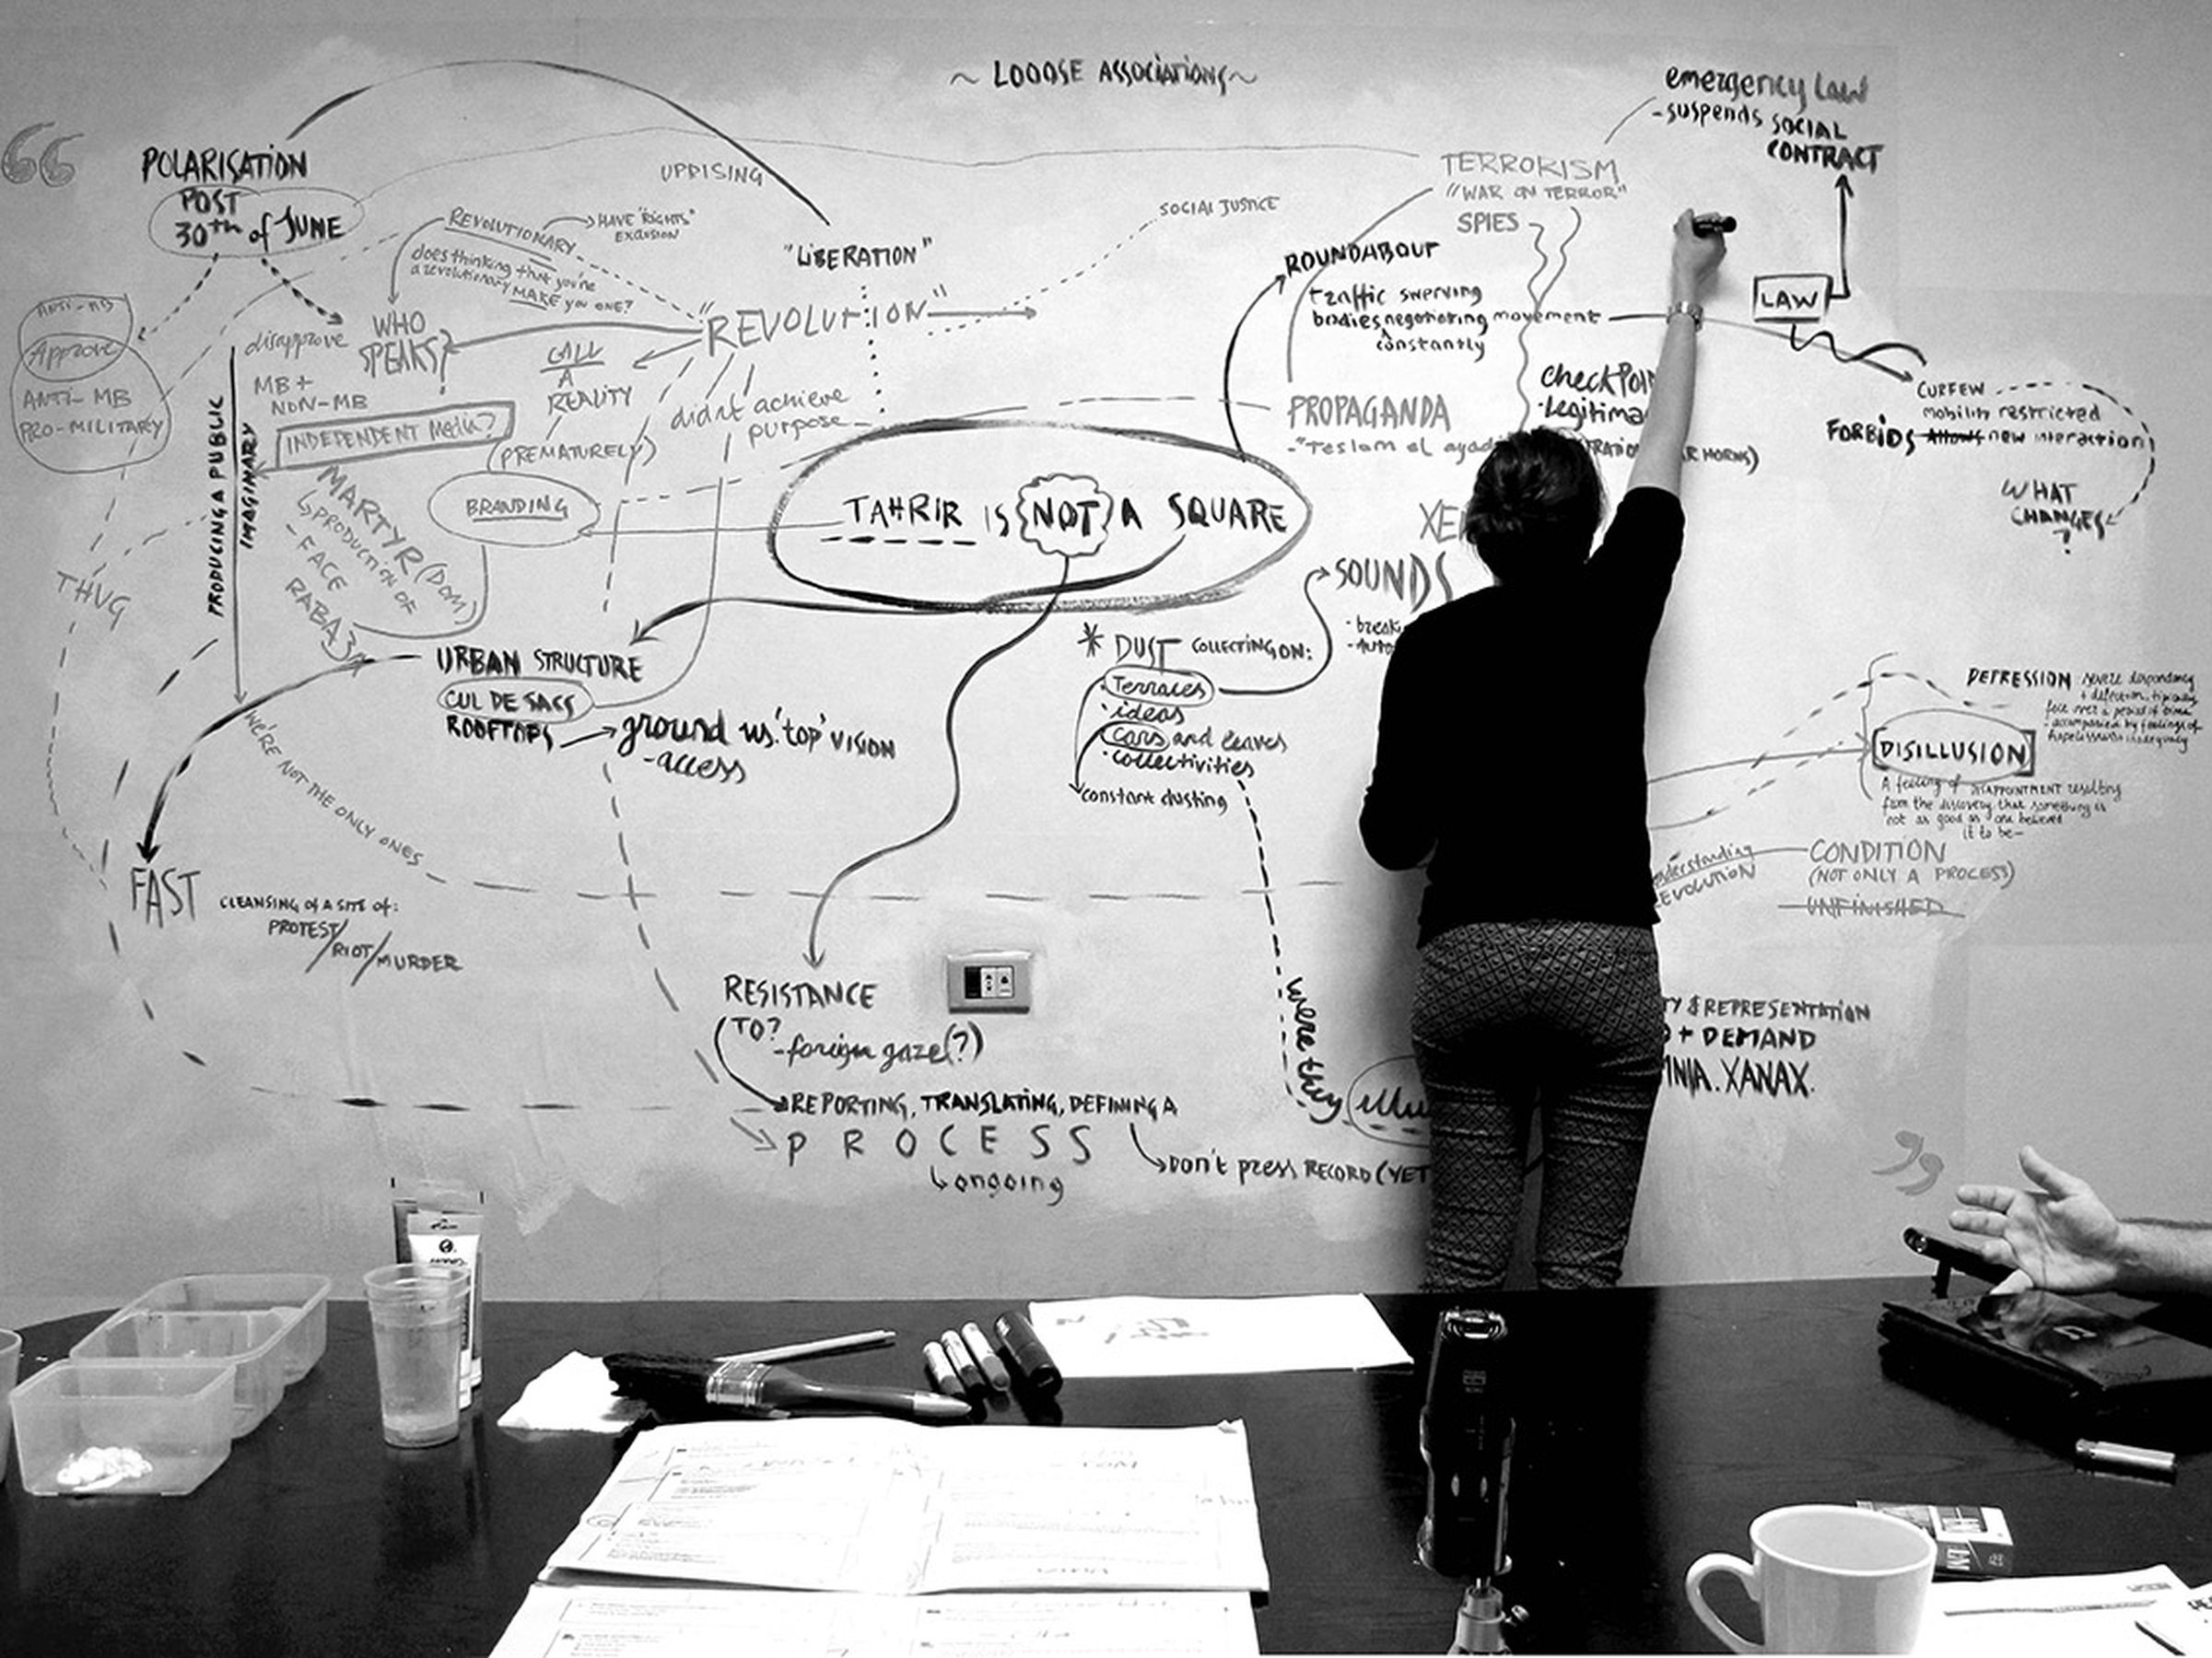 ~ LOOOSE ASSOCIATIONS ~
emergency law
- suspends SOCIAL
CONTRACT
POLARISATION
POST
30th of JUNE
UPRISING
TERRORISM
"WAR ON TERROR"
SPIES
SOCIAL JUSTICE
REVOLUTIONARY
HAVE "RIGHTS"
EXCLUSION
does thinking that you're
a revolutionary MAKE you ONE?
"LIBERATION"
"REVOLUTION"
ROUNDABOUT
traffic swerving
bodies negotiating movement
constantly
LAW
ANTI-MB
Approve
ANTI-MB
PRO-MILITARY
disapprove
MB +
NON-MB
WHO
SPEAKS?
INDEPENDENT Media?
CALL
A
REALITY
(PREMATURELY)
didnt achieve
purpose
PROPAGANDA
- "Teslam el
checkpoi
- legitima
R HORNS)
CURFEW
mobility restricted
FORBIDS Allows new interaction
WHAT
CHANGES
?
PRODUCING A PUBLIC
IMAGINARY
MARTYR (DOM)
PRODUCTION OF
- FACE
RABA3A
BRANDING
TAHRIR IS NOT A SQUARE
THUG
XE
SOUNDS
URBAN STRUCTURE
CUL DE SACS
ROOFTOPS
ground vs. 'top' VISION
- access
* DUST COLLECTING ON:
· Terraces
· ideas
· cars and leaves
· collectivities
constant dusting
WE'RE NOT THE ONLY ONES
DEPRESSION severe despondency
+ dejection, typically
felt over a period of time
accompanied by feelings of
hopelessness inadequacy
DISILLUSION
A feeling of DISAPPOINTMENT resulting
from the discovery that something is
not as good as one believed
it to be-
understanding
REVOLUTION
CONDITION
(NOT ONLY A PROCESS)
UNFINISHED
FAST
CLEANSING of A SITE of:
PROTEST/
RIOT/MURDER
RESISTANCE
TO?
- foreign gaze (?)
REPORTING, TRANSLATING, DEFINING A
PROCESS
ongoing
Don't press RECORD (YET
were they
illu
TY & REPRESENTATION
+ DEMAND
NIA. XANAX.